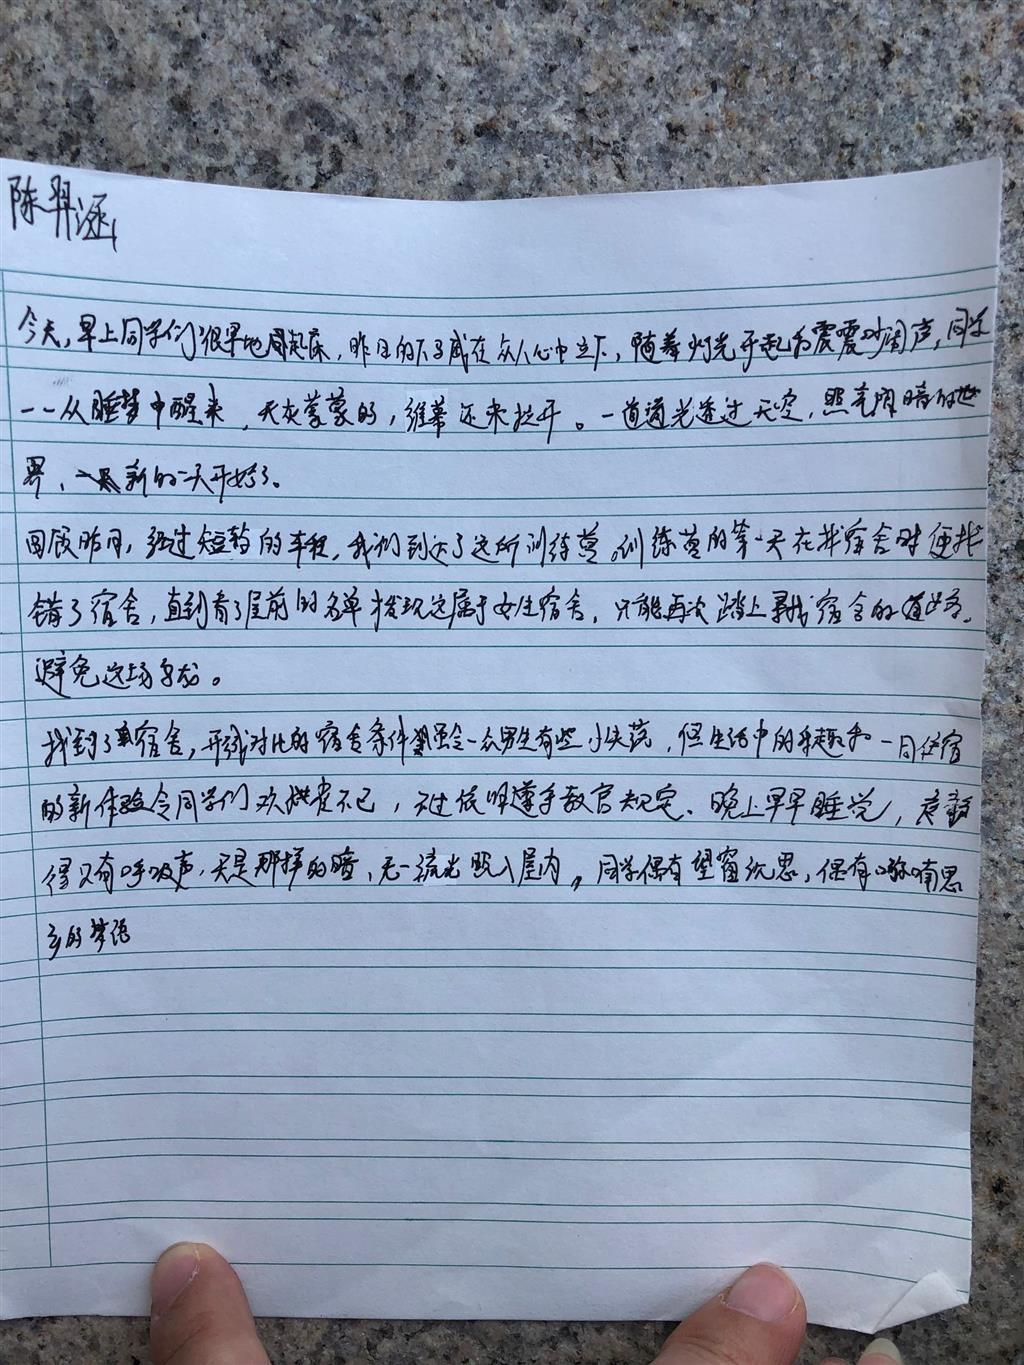 陈羿涵
今天,早上同学们很早地起床,昨日的下马威在众人心中立下,随着灯光开起为震震吵闹声,同学
一一从睡梦中醒来,天灰蒙蒙的,维幕还未拉开。一道道光透过天空,照亮阴暗的世
界,新的一天开始了。
回顾昨日,经过短暂的车程,我们到达了这所训练营。训练营的第一天在找宿舍时便找
错了宿舍,直到看了屋前的名单才发现这属于女生宿舍,只能再次踏上寻找宿舍的道路,
避免这场
找到了宿舍,形成对比的宿舍条件令一众男生有些小失落,但生活中的乐趣和一同住宿
的新体验令同学们欢不已,不过依旧遵守教官规定、晚上早早睡觉,
得只有呼吸声,天是那样的暗,无一流光照入屋内。同学偶有望窗沉思,偶有喃喃思
乡的梦语